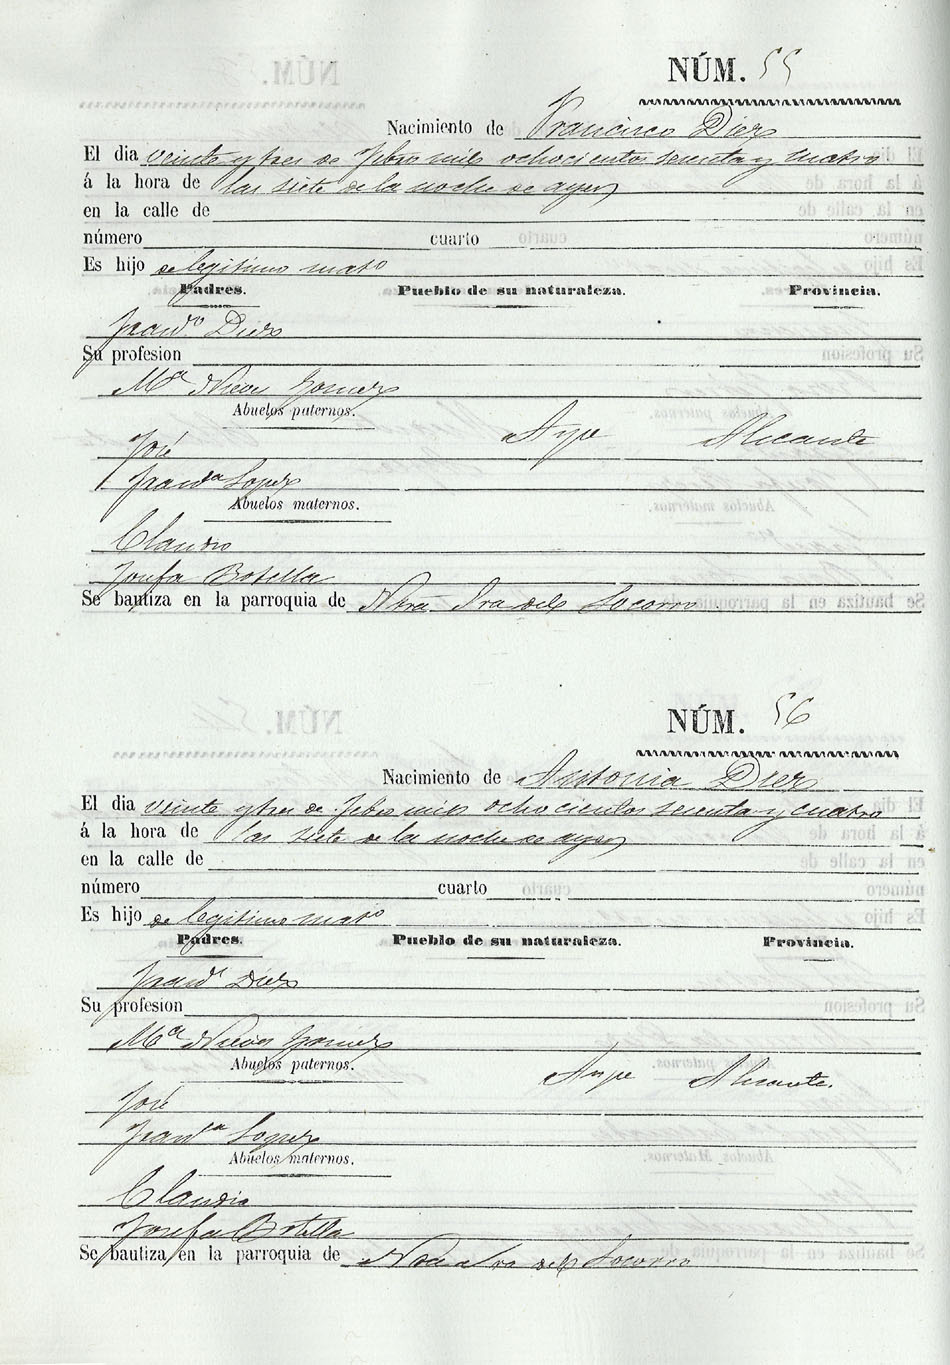 NÚM. 55
Nacimiento de Francisco Diez
El dia veinte y tres de Febro mil ochocientos secenta y cuatro
á la hora de las siete de la noche de ayer
en la calle de
número cuarto
Es hijo de legitimo mato
Padres. Pueblo de su naturaleza. Provincia.
Franco. Diez
Su profesion
Ma Nieves Gomez
Abuelos paternos.
José Aspe Alicante
Franca Lopez
Abuelos maternos.
Claudio
Josefa Botella
Se bautiza en la parroquia de Ntra Sra del Socorro
NÚM. 56
Nacimiento de Antonia Diez
El dia veinte y tres de Febro mil ochocientos secenta y cuatro
á la hora de las siete de la noche de ayer
en la calle de
número cuarto
Es hijo de legitimo mato
Padres. Pueblo de su naturaleza. Provincia.
Franco Diez
Su profesion
Ma Nieves Gomez
Abuelos paternos. Aspe Alicante.
José
Franca Lopez
Abuelos maternos.
Claudio
Josefa Botella
Se bautiza en la parroquia de Sra del Socorro